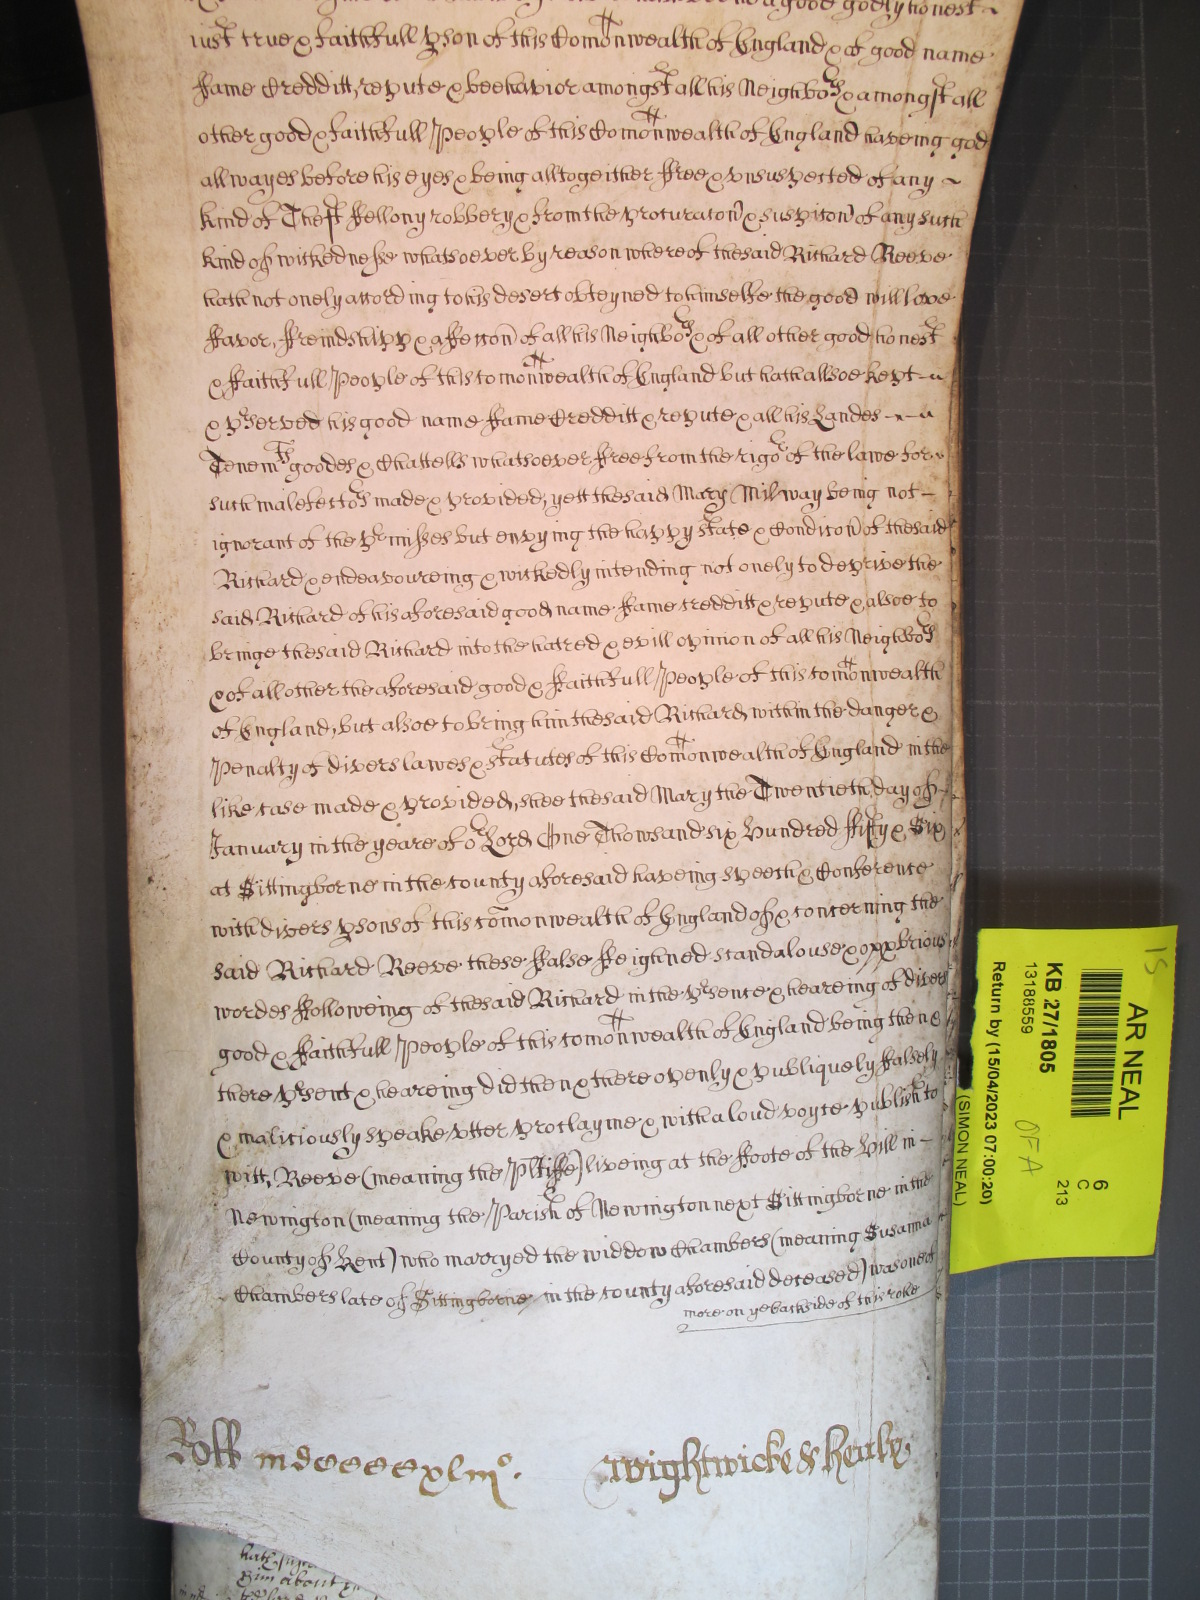 good godly honest
iust true & faithfull pson of this Comonwealth of England & of good name
ffame Credditt, repute & behavior amongst all his Neighbors & amongst all
other good & faithfull People of this Comonwealth of England haveing god
allwayes before his eyes & being alltogeither ffree & vnsuspected of any
kind of Theft ffellony robbery & from the procuracon & suspicon of any such
kind of wickednesse whatsoever by reason whereof the said Richard Reeve
hath not onely according to his desert obteyned to himselfe the good will love
ffavor, ffreindshipp & affeccon of all his Neighbors & of all other good honest
& ffaithfull People of this comonwealth of England but hath allsoe kept
& pserved his good name ffame Credditt & repute & all his Landes
Tenemts goodes & Chattells whatsoever ffree from the rigor of the lawe for
such malefactors made & provided, yett the said Mary Milway being not
ignorant of the prmisses but envying the happy state & Condicon of the said
Richard & endeavoureing & wickedly intending not onely to deprive the
said Richard of his aforesaid good name ffame credditt & repute & alsoe to
bringe the said Richard into the hatred & evill opinion of all his Neighbors
& of all other the aforesaid good & ffaithfull People of this comonwealth
of England, but alsoe to bring him the said Richard, within the danger &
Penalty of divers lawes & statutes of this Comonwealth of England in the
like case made & provided, shee the said Mary the Twentieth day of
January in the yeare of or Lord One Thowsand six Hundred fifty & Six
at Sittingborne in the county aforesaid haveing speech & Conference
with divers psons of this comonwealth of England of & concerning the
said Richard Reeve these ffalse ffeighned scandalouse & opprbrious
wordes ffolloweing of the said Richard in the prsence & heareing of divers
good & ffaithfull People of this comonwealth of England being then &
there prsent & heareing did then & there openly & publiquely falsely
& maliciously speake vtter proclayme & with a loud voyce publish to
witt, Reeve (meaning the Pltiffe) liveing at the ffoote of the Hill in
Newington (meaning the Parish of Newington next Sittingborne in the
County of Kent) who marryed the widdow Chambers (meaning Susanna
Chambers late of Sittingborne in the county aforesaid deceased) was one of
more on ye backside of this rolle
Roll mdccccxliijo.
Wightwicke & Healy
hath
him about
AR NEAL
6
C
213
KB 27/1805
13188559
Return by (15/04/2023 07:00:20)
(SIMON NEAL)
OFA